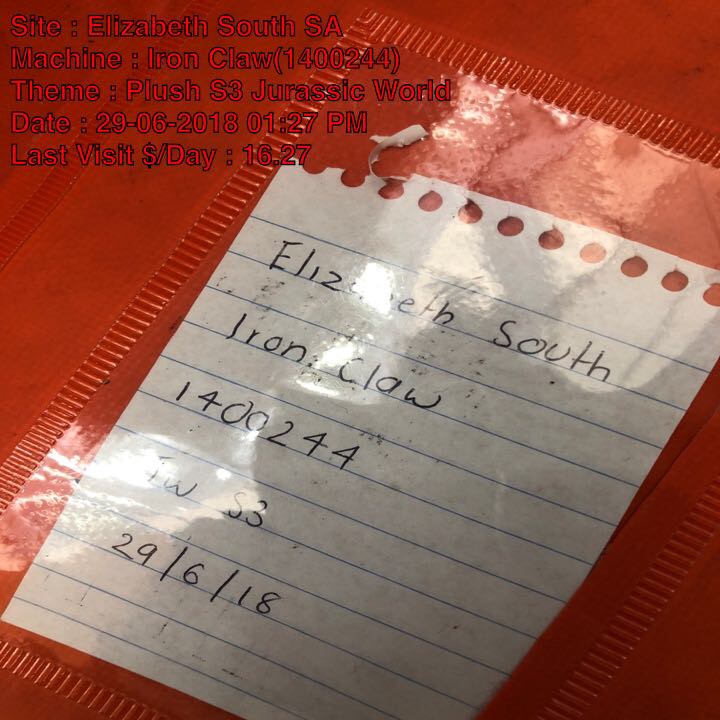 Site : Elizabeth South SA
Machine : Iron Claw(1400244)
Theme : Plush S3 Jurassic World
Date : 29-06-2018 01:27 PM
Last Visit $/Day : 16.27
Elizabeth South
Iron Claw
1400244
JW S3
29/6/18